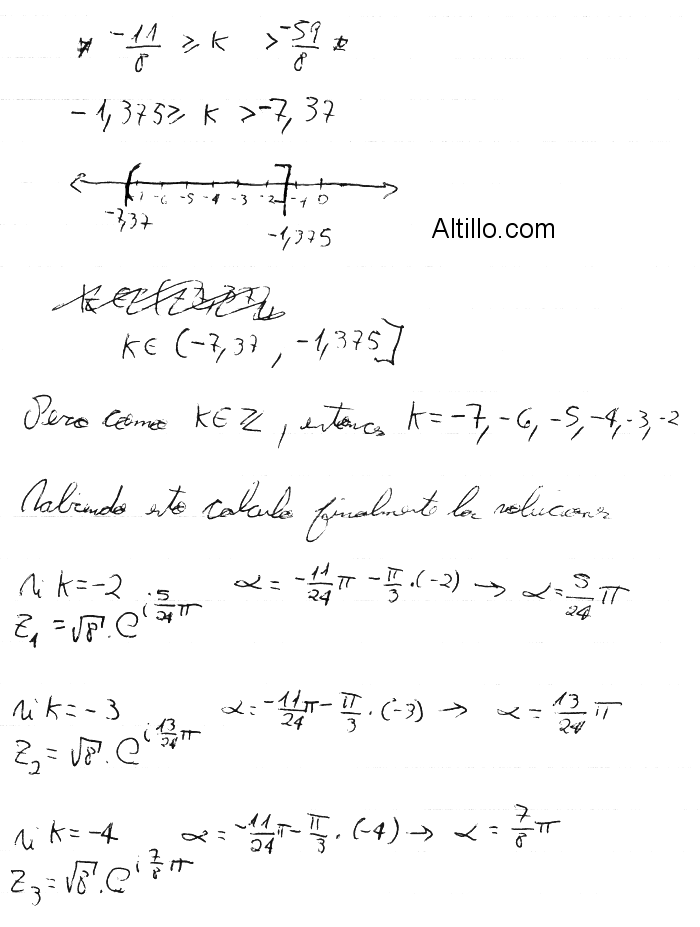 -11/8 ≥ K > -59/8
-1,375 ≥ K > -7,37
-7 -6 -5 -4 -3 -2 -1 0
-7,37 -1,375
Altillo.com
K ∈ (-7,37 , -1,375]
Pero como K ∈ Z, entonces K = -7, -6, -5, -4, -3, -2
Sabiendo esto calculo finalmente las soluciones
si K = -2 α = -11/24 π - π/3 . (-2) → α = 5/24 π
Z₁ = √8 . e^(i 5/24 π)
si K = -3 α = -11/24 π - π/3 . (-3) → α = 13/24 π
Z₂ = √8 . e^(i 13/24 π)
si K = -4 α = -11/24 π - π/3 . (-4) → α = 7/8 π
Z₃ = √8 . e^(i 7/8 π)